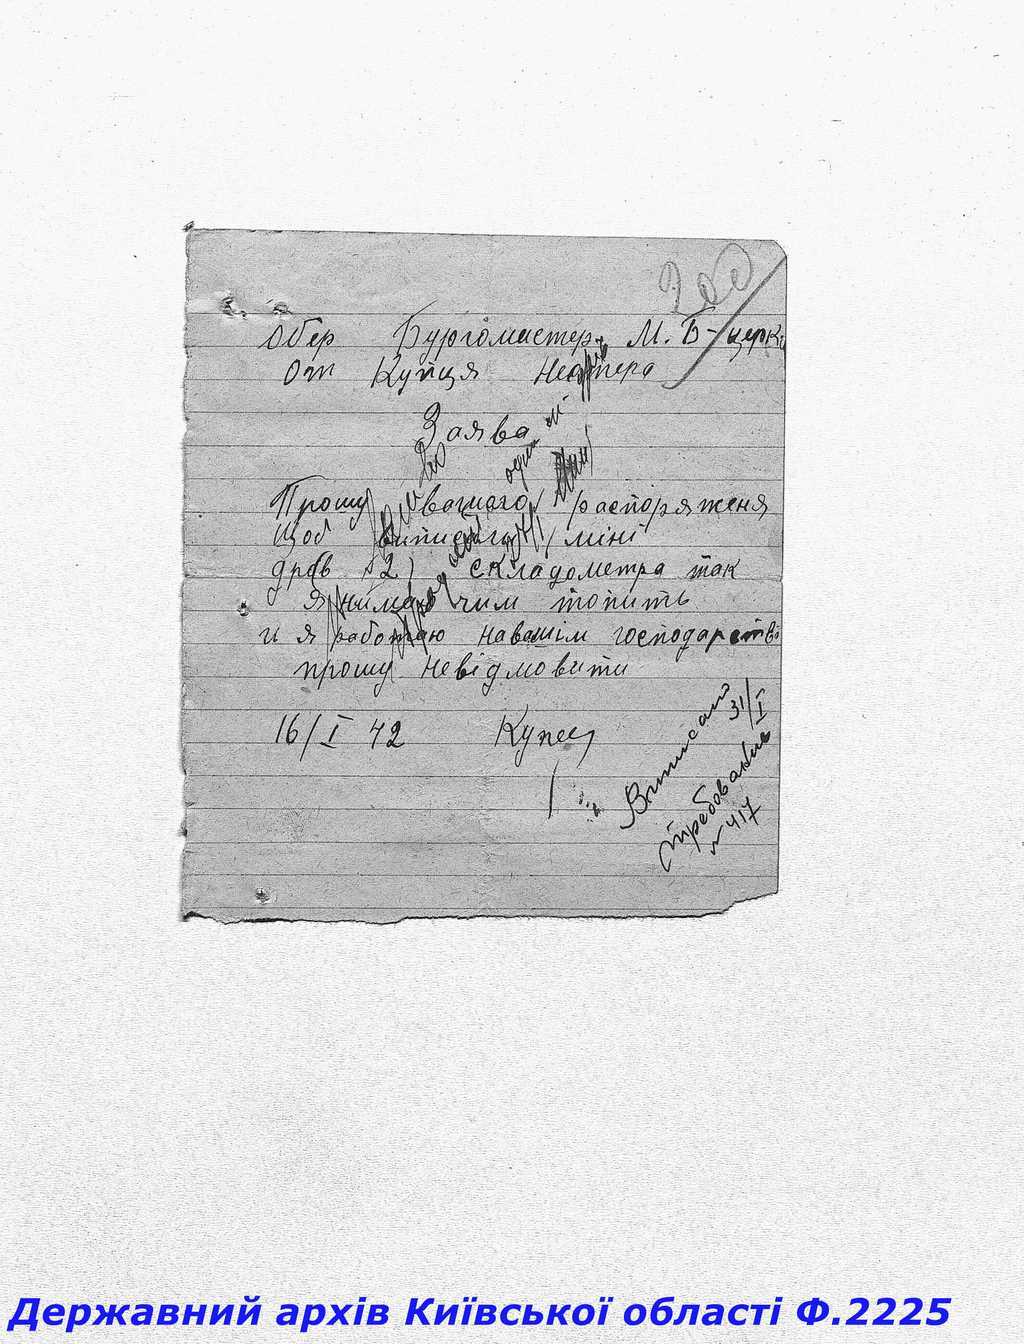 200
Обер Бургомистер М. Б-церкі
от Купця
Заява
Прошу вашого распоряженя
Щоб виписали міні
дров 2 складометра так
я нимаю чим топить
и я работаю навашім господарстві
прошу невідмовити
16/I 42 Купец
Виписано 31/I
требование
№ 417
Державний архів Київської області Ф.2225